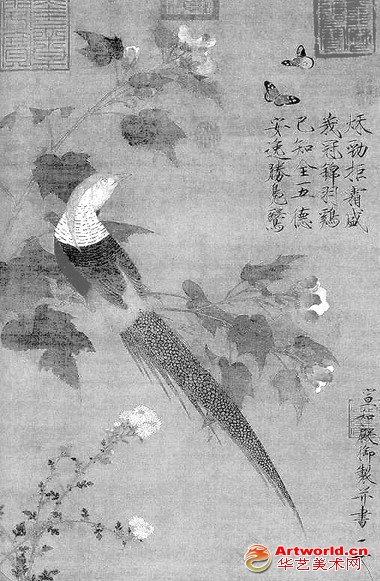 秋勁拒霜盛
峩冠錦羽鷄
已知全五德
安逸勝鳧鷖
宣和殿御製并書
Artworld.cn
华艺美术网